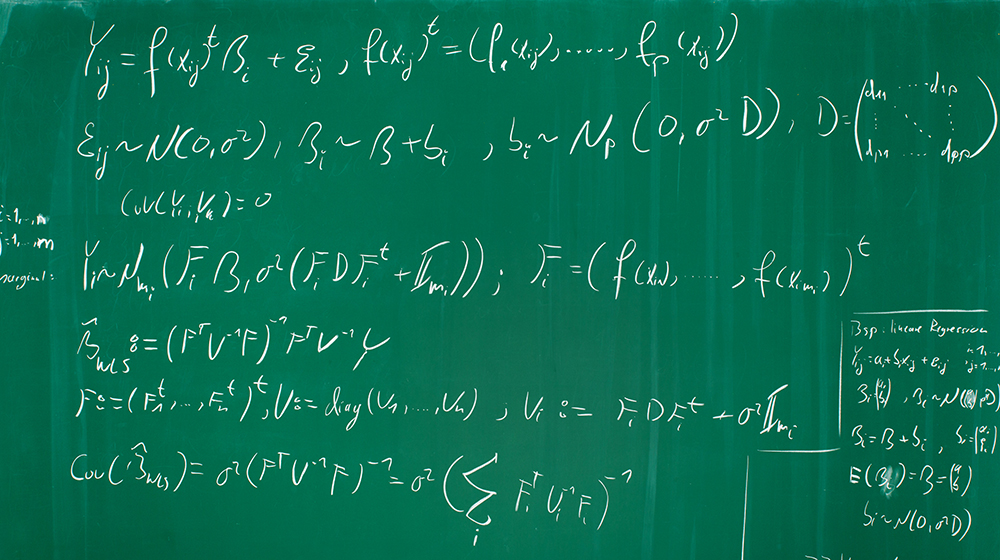 Y_ij = f(x_ij)^t β_i + ε_ij , f(x_ij)^t = (f_1(x_ij), ....., f_p(x_ij))
ε_ij ~ N(0, σ²) , β_i ~ β + b_i , b_i ~ N_p (0, σ² D) , D = (d_11 .... d_1p
d_p1 .... d_pp)
Cov(Y_i, Y_k) = 0
i = 1,..,n
j = 1,..,m
marginal: Y_i ~ N_mi (F_i β, σ² (F_i D F_i^t + 𝕀_mi)) ; F_i = (f(x_i1), ....., f(x_imi))^t
β̂_WLS := (F^T V^-1 F)^-1 F^T V^-1 Y
F := (F_1^t, ..., F_n^t)^t , V := diag(V_1, ..., V_n) ; V_i := F_i D F_i^t + σ² 𝕀_mi
Cov(β̂_WLS) = σ² (F^T V^-1 F)^-1 = σ² (∑_i F_i^T V_i^-1 F_i)^-1
Bsp: lineare Regression
Y_ij = a_i + b_i x_ij + ε_ij
i = 1, ...
j = 1, ...
β_i = β + b_i
E(β_i) = β = (a b)
b_i ~ N(0, σ² D)